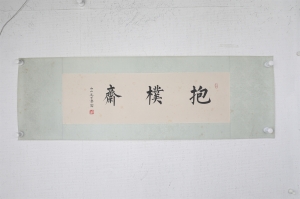 抱樸齋